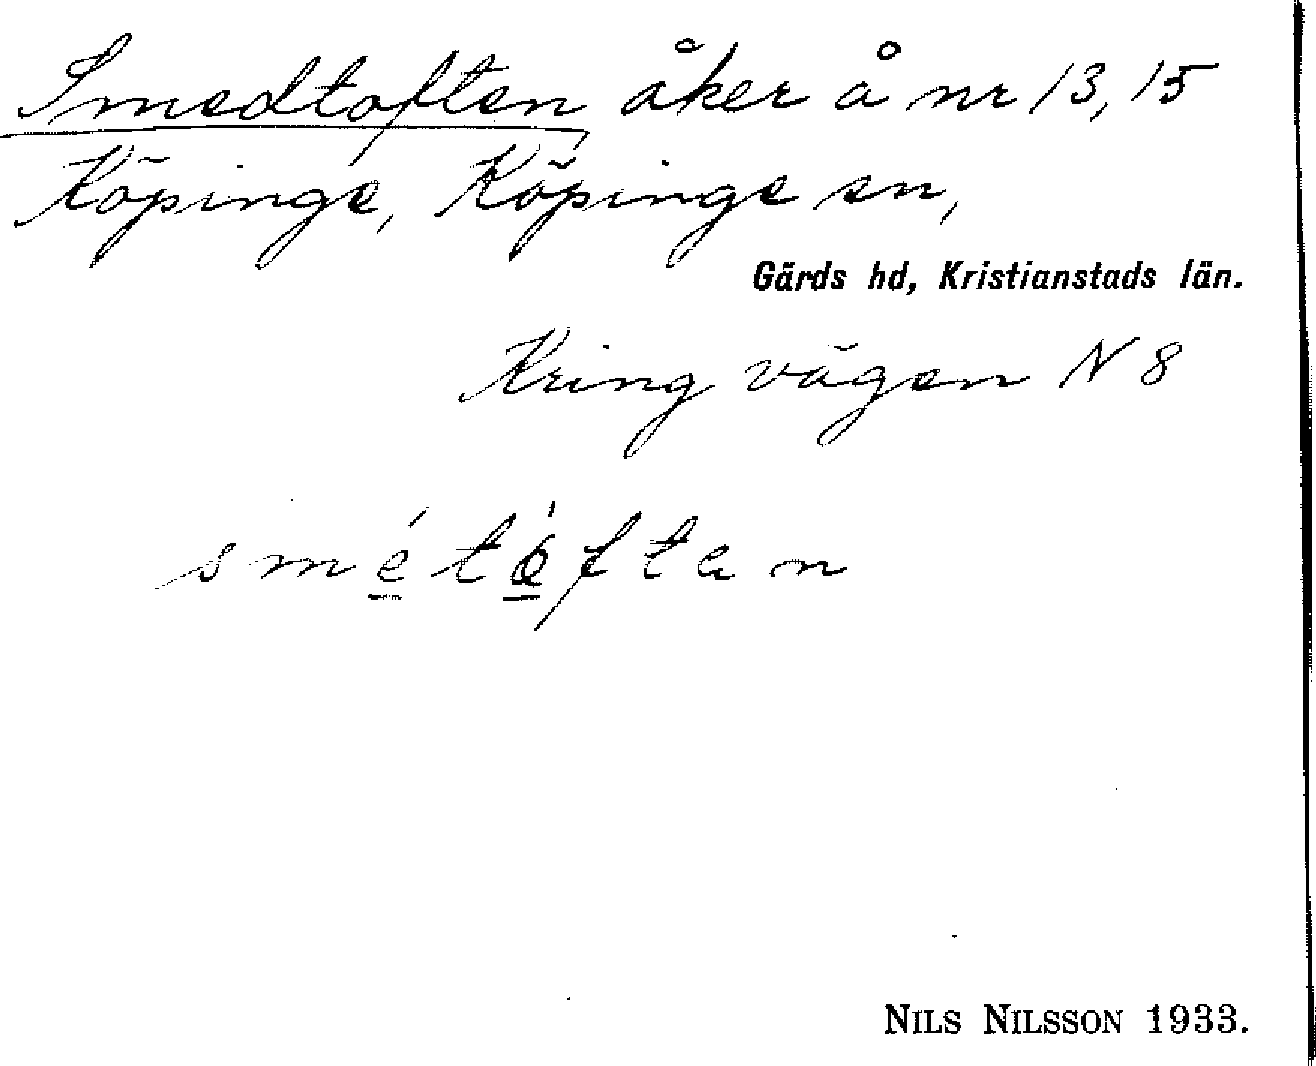 Smedtoften åker å nr 13, 15
Köpinge, Köpinge sn,
Gärds hd, Kristianstads län.
Kring vägen N 8
smétóftan
NILS NILSSON 1933.